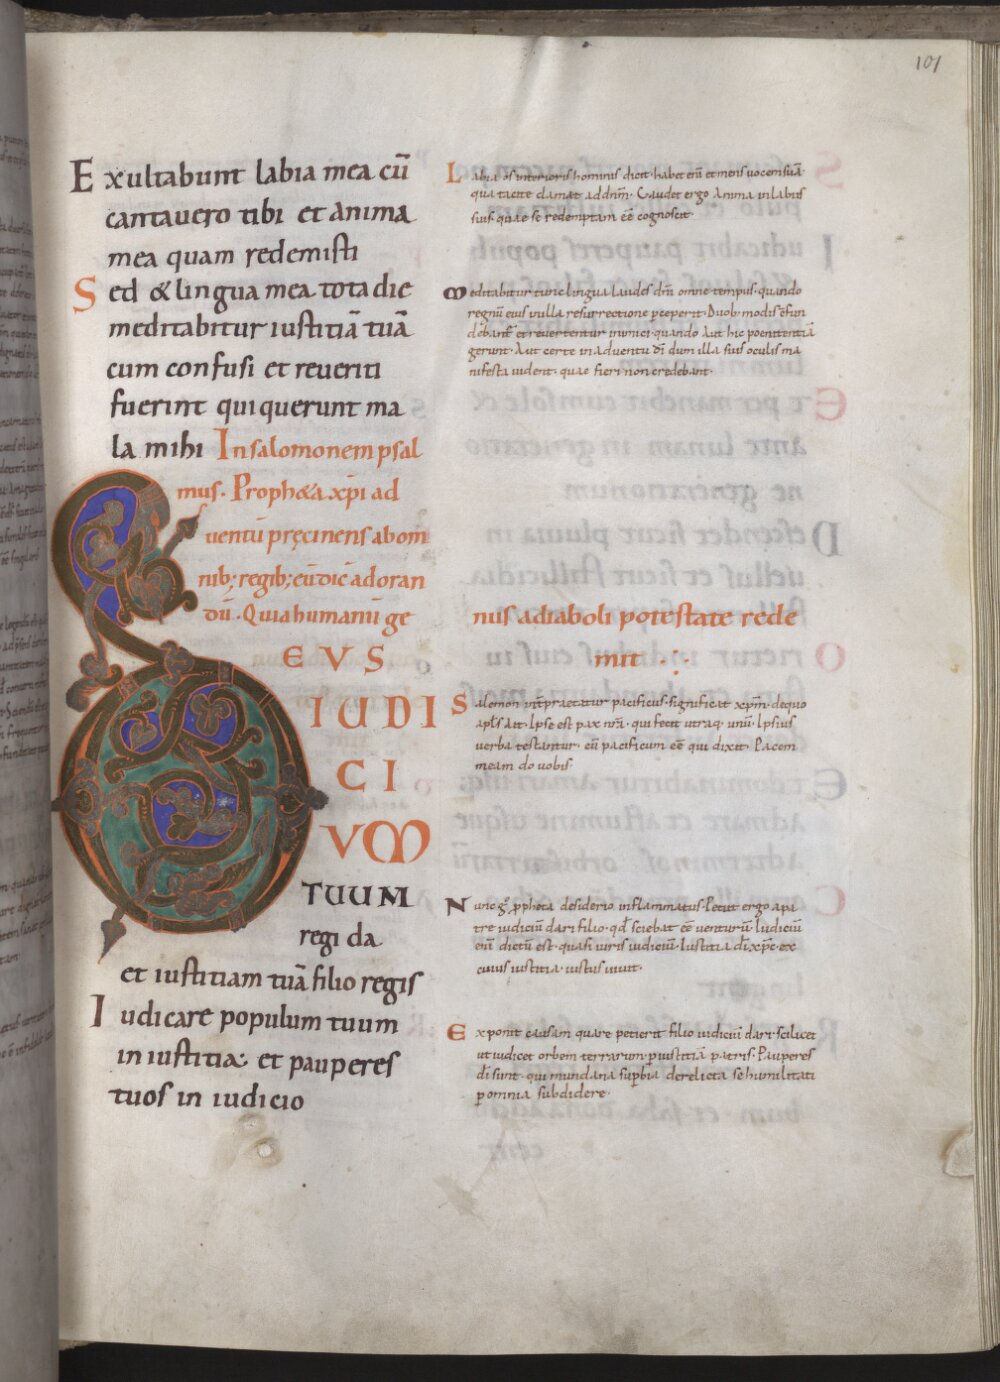 101
Exultabunt labia mea cū
cantauero tibi et anima
mea quam redemisti
Sed & lingua mea tota die
meditabitur iustitiā tuā
cum confusi et reueriti
fuerint qui querunt ma
la mihi In salomonem psal
mus. Proph&a xp̄i ad
uentū pręcinens abom
nib; regib; eū dic̄ adoran
dū. Quia humanū ge
nus a diaboli potestate rede
mit
DEVS
IUDI
CI
VM
TUUM
regi da
et iustitiam tuā filio regis
Iudicare populum tuum
in iustitia. et pauperes
tuos in iudicio
Labia os interioris hominis dicit. habet eni et mens uocem suā
qua tacite clamat ad dn̄m. Gaudet ergo anima in labiis
suis. quae se redemptam eē cognoscit
Meditabitur tunc lingua laudes dn̄i omne tempus. quando
regnū eius nulla resurrectione peperit. Duob; modis
et reuertentur inimici quando aut hic poenitentiā
gerunt. Aut certe in aduentu dn̄i dum illa suis oculis ma
nifesta uident. quae fieri non credebant.
Salomon int̄praetatur pacificus. significat xp̄m. de quo
apl̄s ait. Ipse est pax nr̄a. qui fecit utraq. unū. Ipsius
uerba testantur. eū pacificum eē qui dixit. Pacem
meam do uobis.
Nunc g̊ ꝓpheta desiderio inflammatus. Petit ergo a pa
tre iudiciū dari filio. qd̄ sciebat eē uenturū. Iudiciū
eni dictū est. quasi iuris iudiciū. Iustitia di xp̄c. ex
cuius iustitia. iustus uiuit.
Exponit causam quare petierit filio iudiciū dari. scilicet
ut iudicet orbem terrarum ꝑ iustitiā patris. Pauperes
di sunt. qui mundana sup̄bia derelicta se humilitati
ꝑ omnia subdidere.